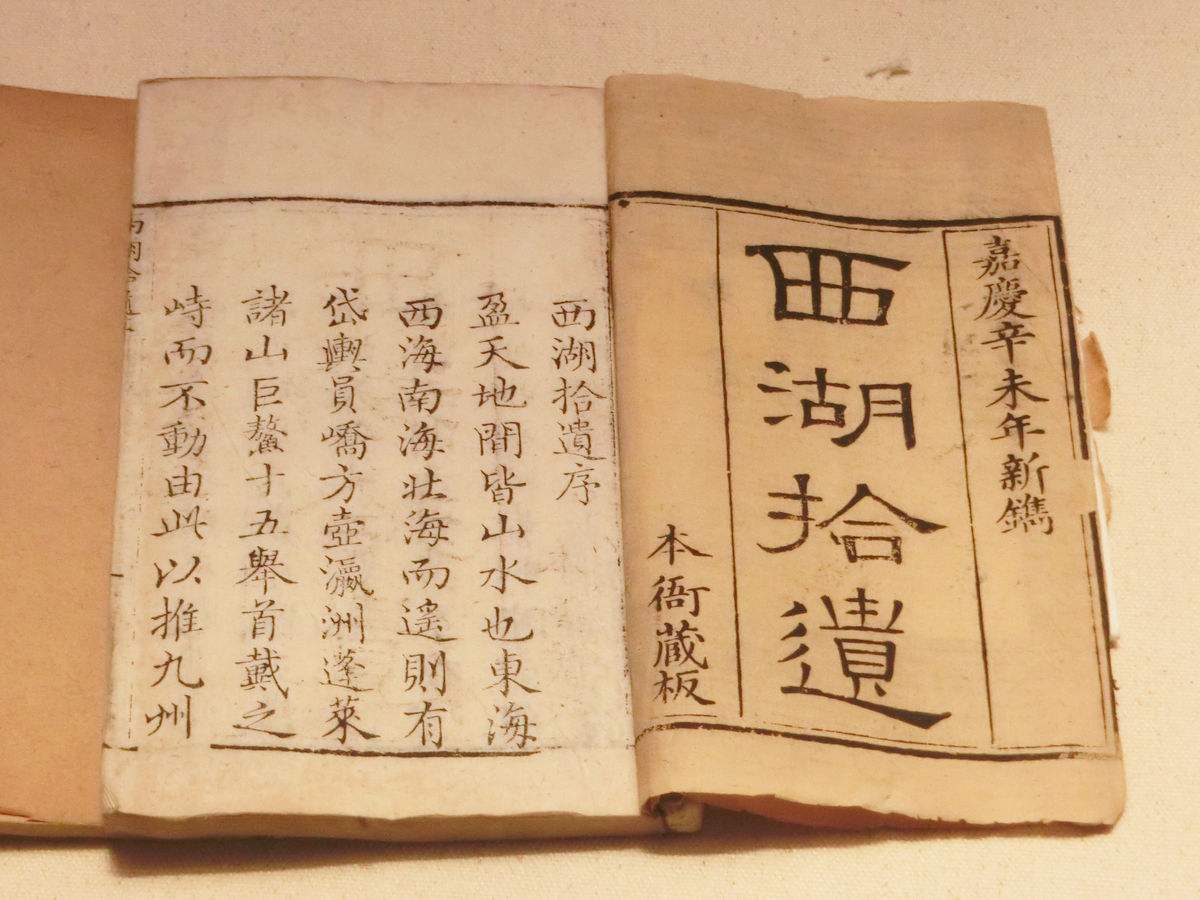 嘉慶辛未年新鐫
西湖拾遺
本衙藏板
西湖拾遺序
盈天地間皆山水也東海
西海南海北海而遙則有
岱輿員嶠方壺瀛洲蓬萊
諸山巨鰲十五舉首戴之
峙而不動由此以推九州